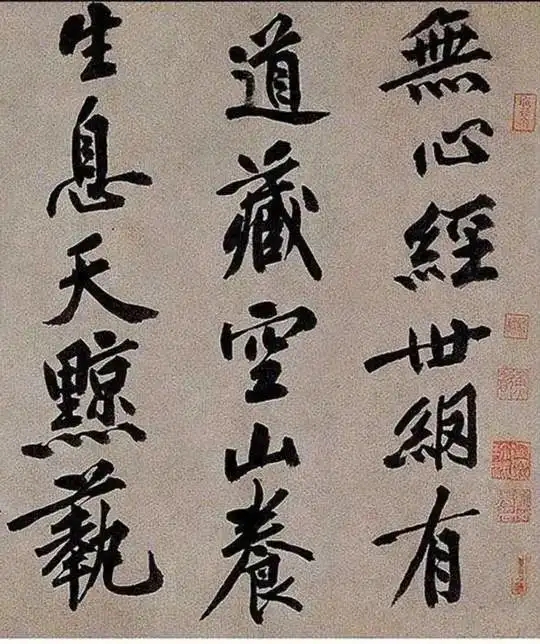 無心經世網有
道藏空山養
生息天黥蓺